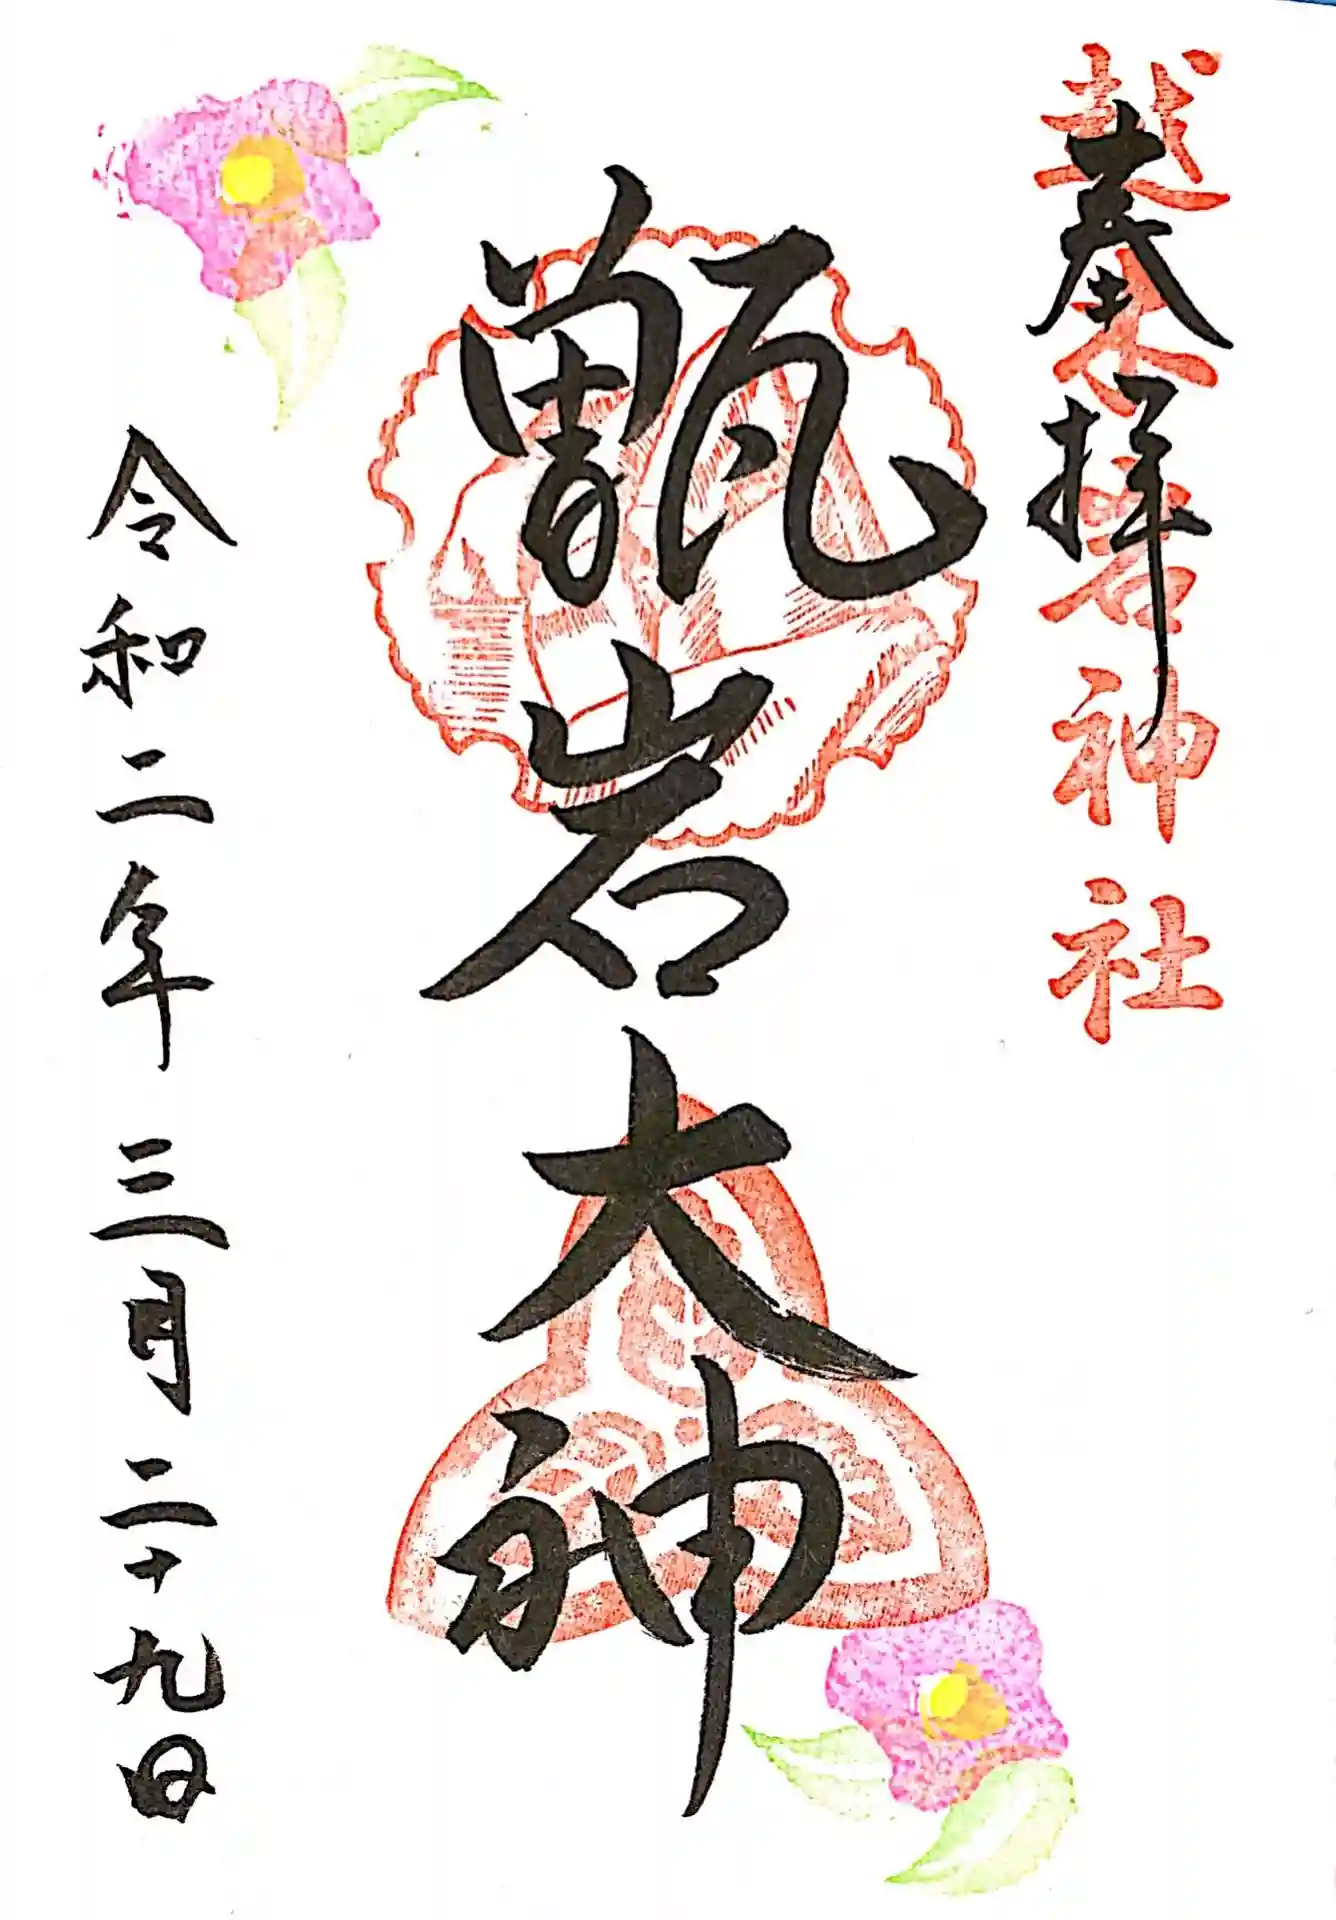 奉拝
越木岩神社
甑岩大神
令和二年三月二十九日